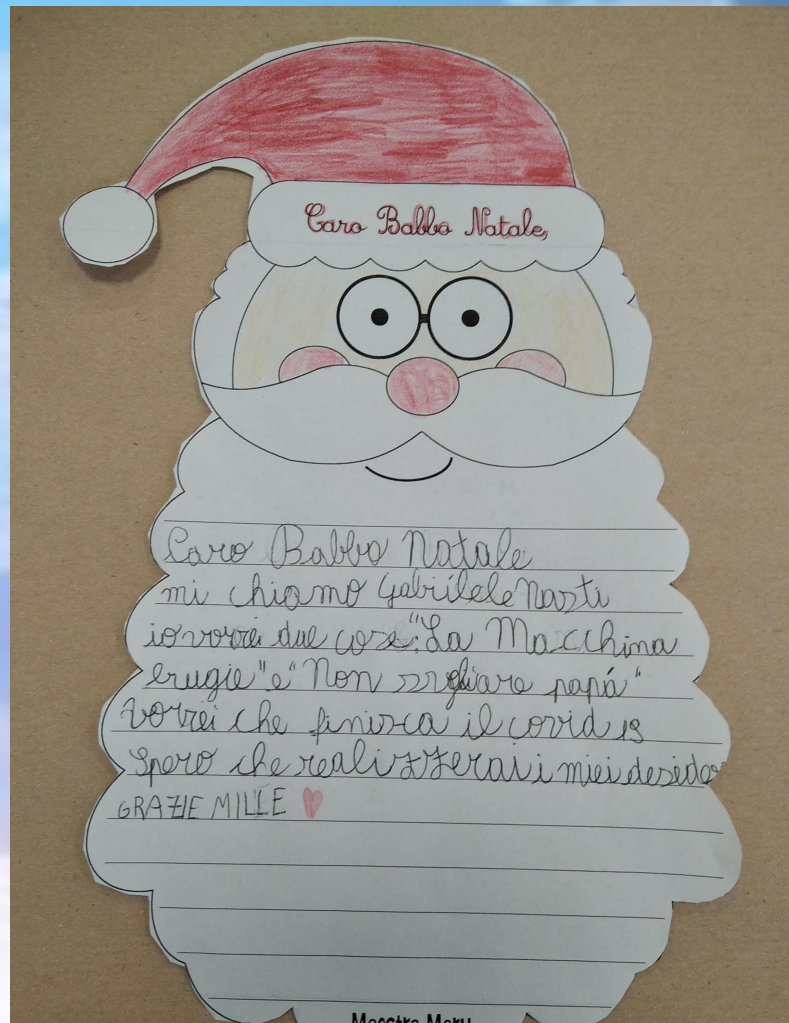 Caro Babbo Natale,
Caro Babbo Natale
mi chiamo Gabrilele Nasti
io vorrei due cose:"La Macchina
erugie" e "Non svegliare papá"
Vorrei che finisca il covid 19
Spero che realizzerai i miei
GRAZIE MILLE
Maestra Mary